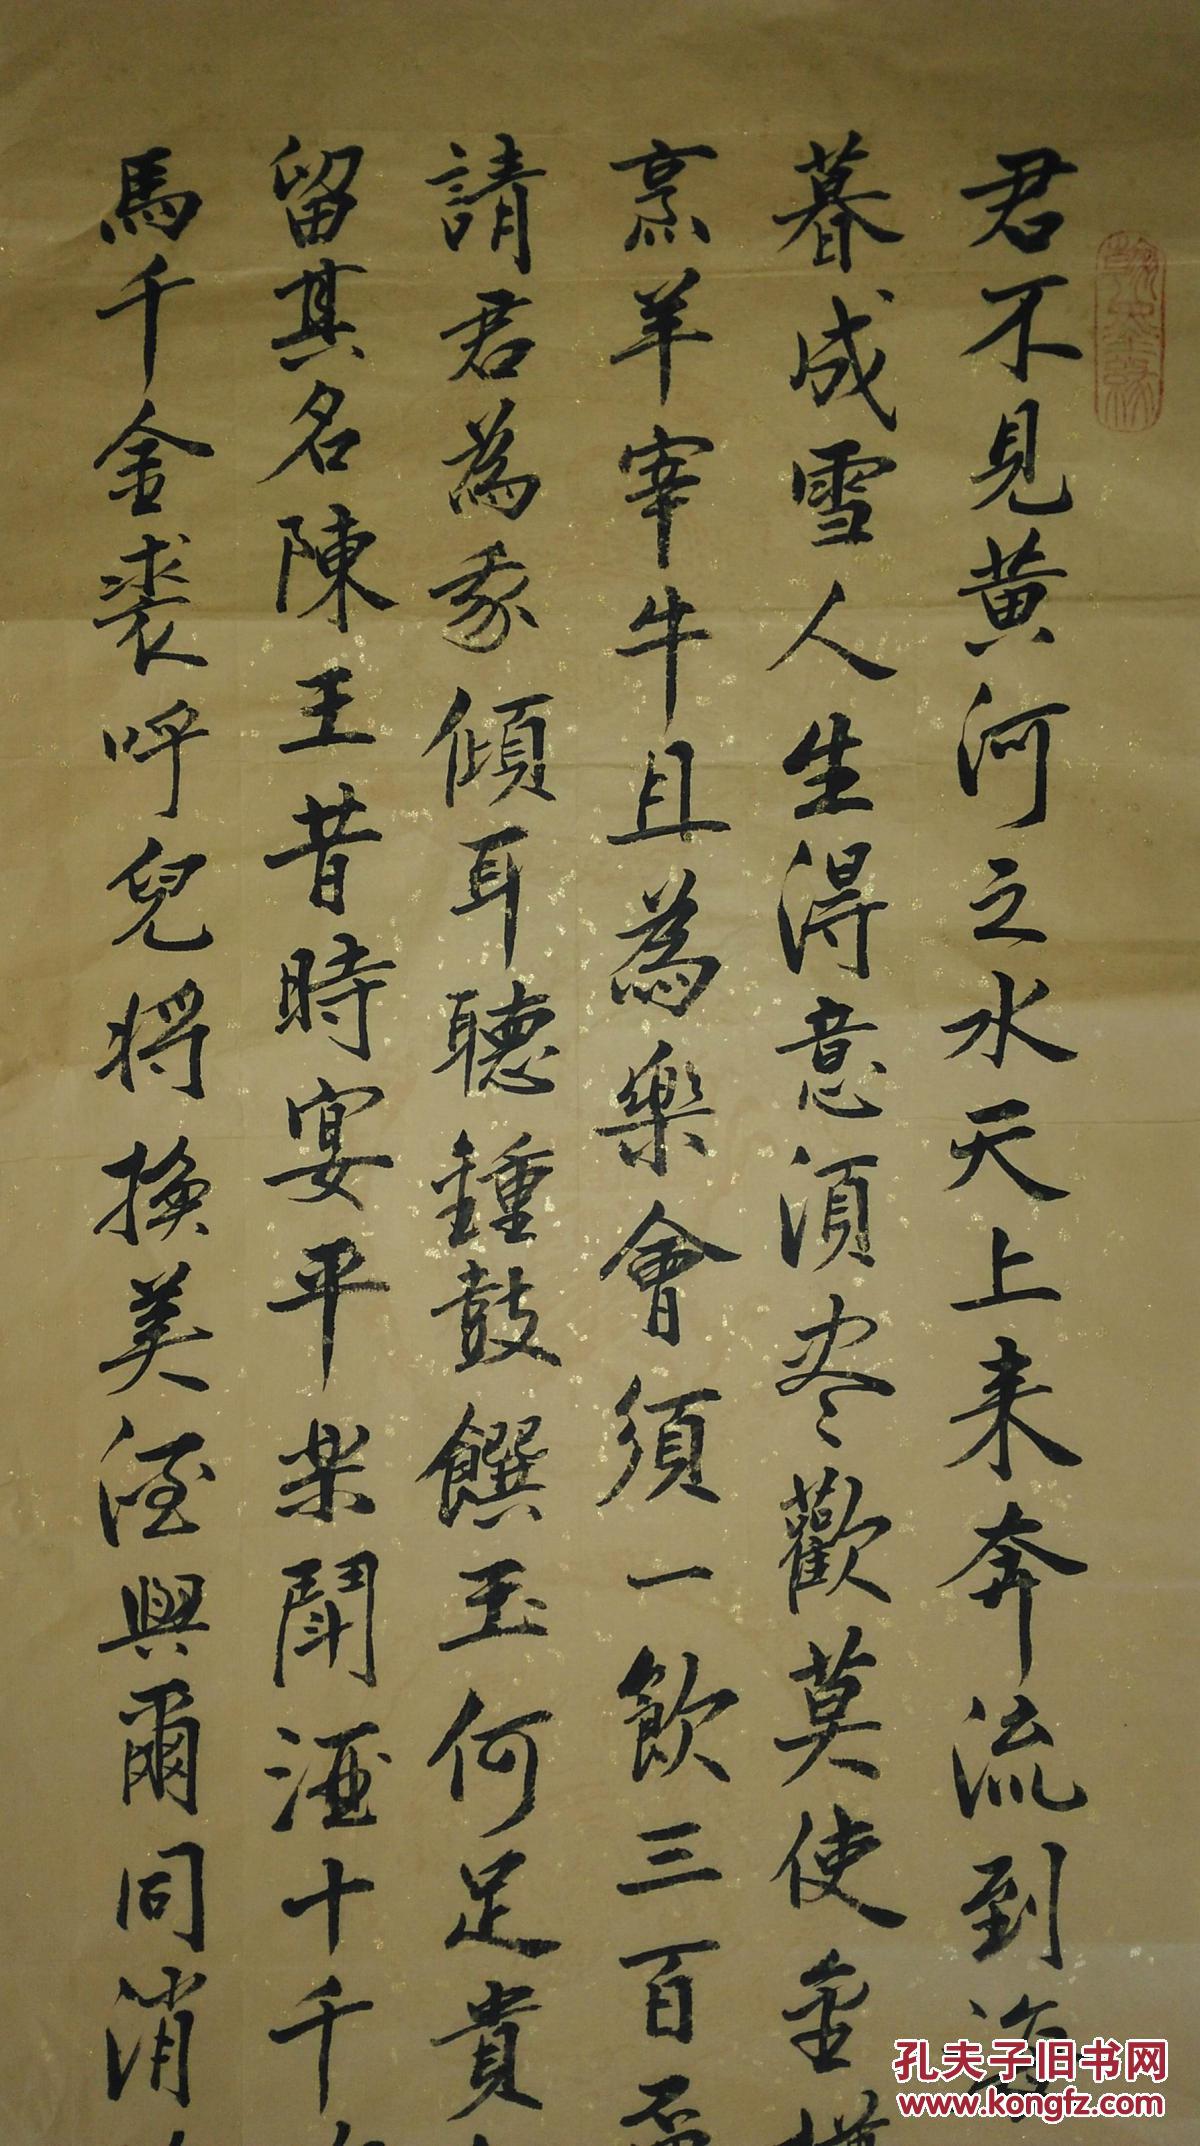 君不見黄河之水天上来奔流到海
暮成雪人生得意須尽歡莫使金樽
烹羊宰牛且為樂會須一飲三百盃
請君為我傾耳聽鍾鼓饌玉何足貴
留其名陳王昔時宴平楽鬭酒十千
馬千金裘呼兒将換美酒與爾同消
孔夫子旧书网
www.kongfz.com